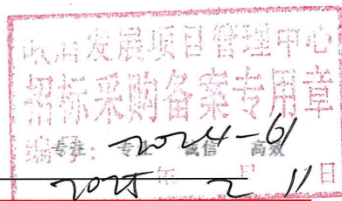 发展项目管理中心
招标采购备案专用章
编号: 2024-61
专注 专业 诚信 高效
2025年 2月 11日